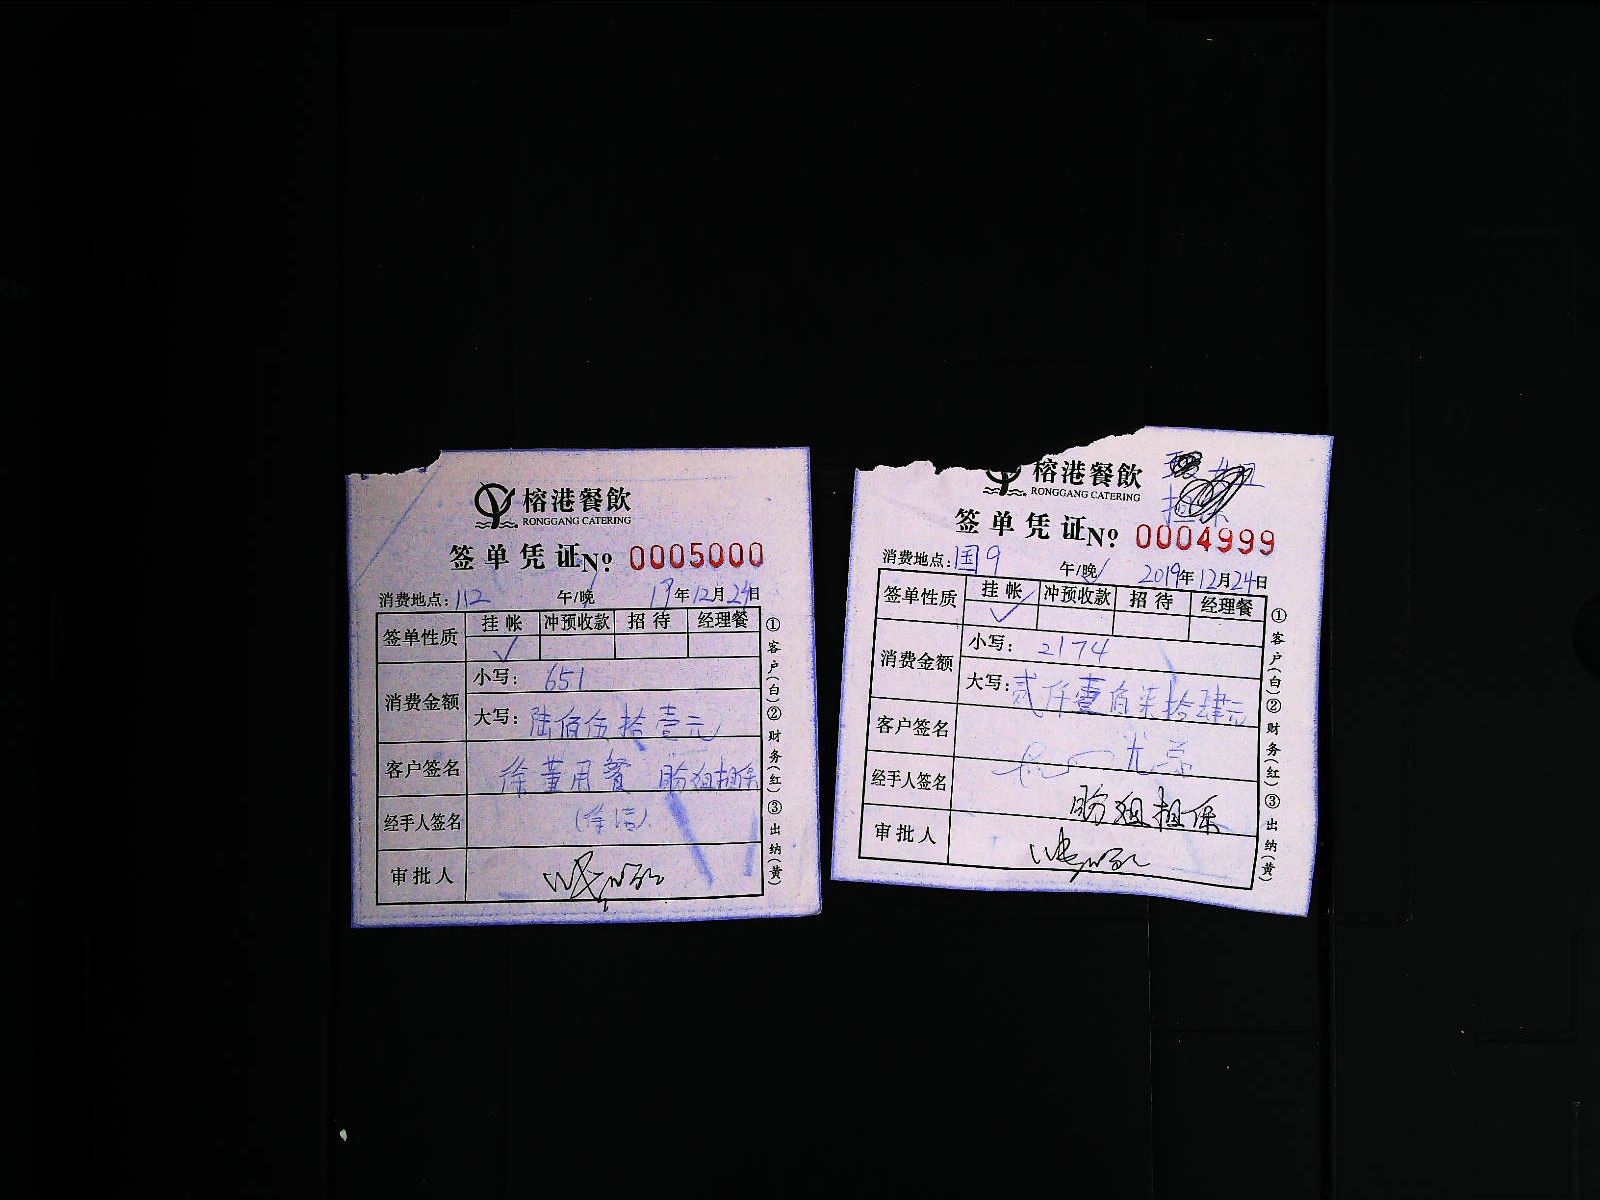 榕港餐飲
RONGGANG CATERING
签单凭证 No. 0005000
消费地点:112 午/晚 19年12月24日
签单性质 挂帐 冲预收款 招待 经理餐
✓
消费金额 小写: 651
大写: 陆佰伍拾壹元
客户签名 徐董用餐 盼姐担保
经手人签名
审批人
①客户(白)②财务(红)③出纳(黄)
榕港餐飲
RONGGANG CATERING
签单凭证 No. 0004999
消费地点:国9 午/晚✓ 2019年12月24日
签单性质 挂帐 冲预收款 招待 经理餐
✓
消费金额 小写: 2174
大写: 贰仟壹佰柒拾肆元
客户签名 尤总
经手人签名 盼姐担保
审批人
①客户(白)②财务(红)③出纳(黄)